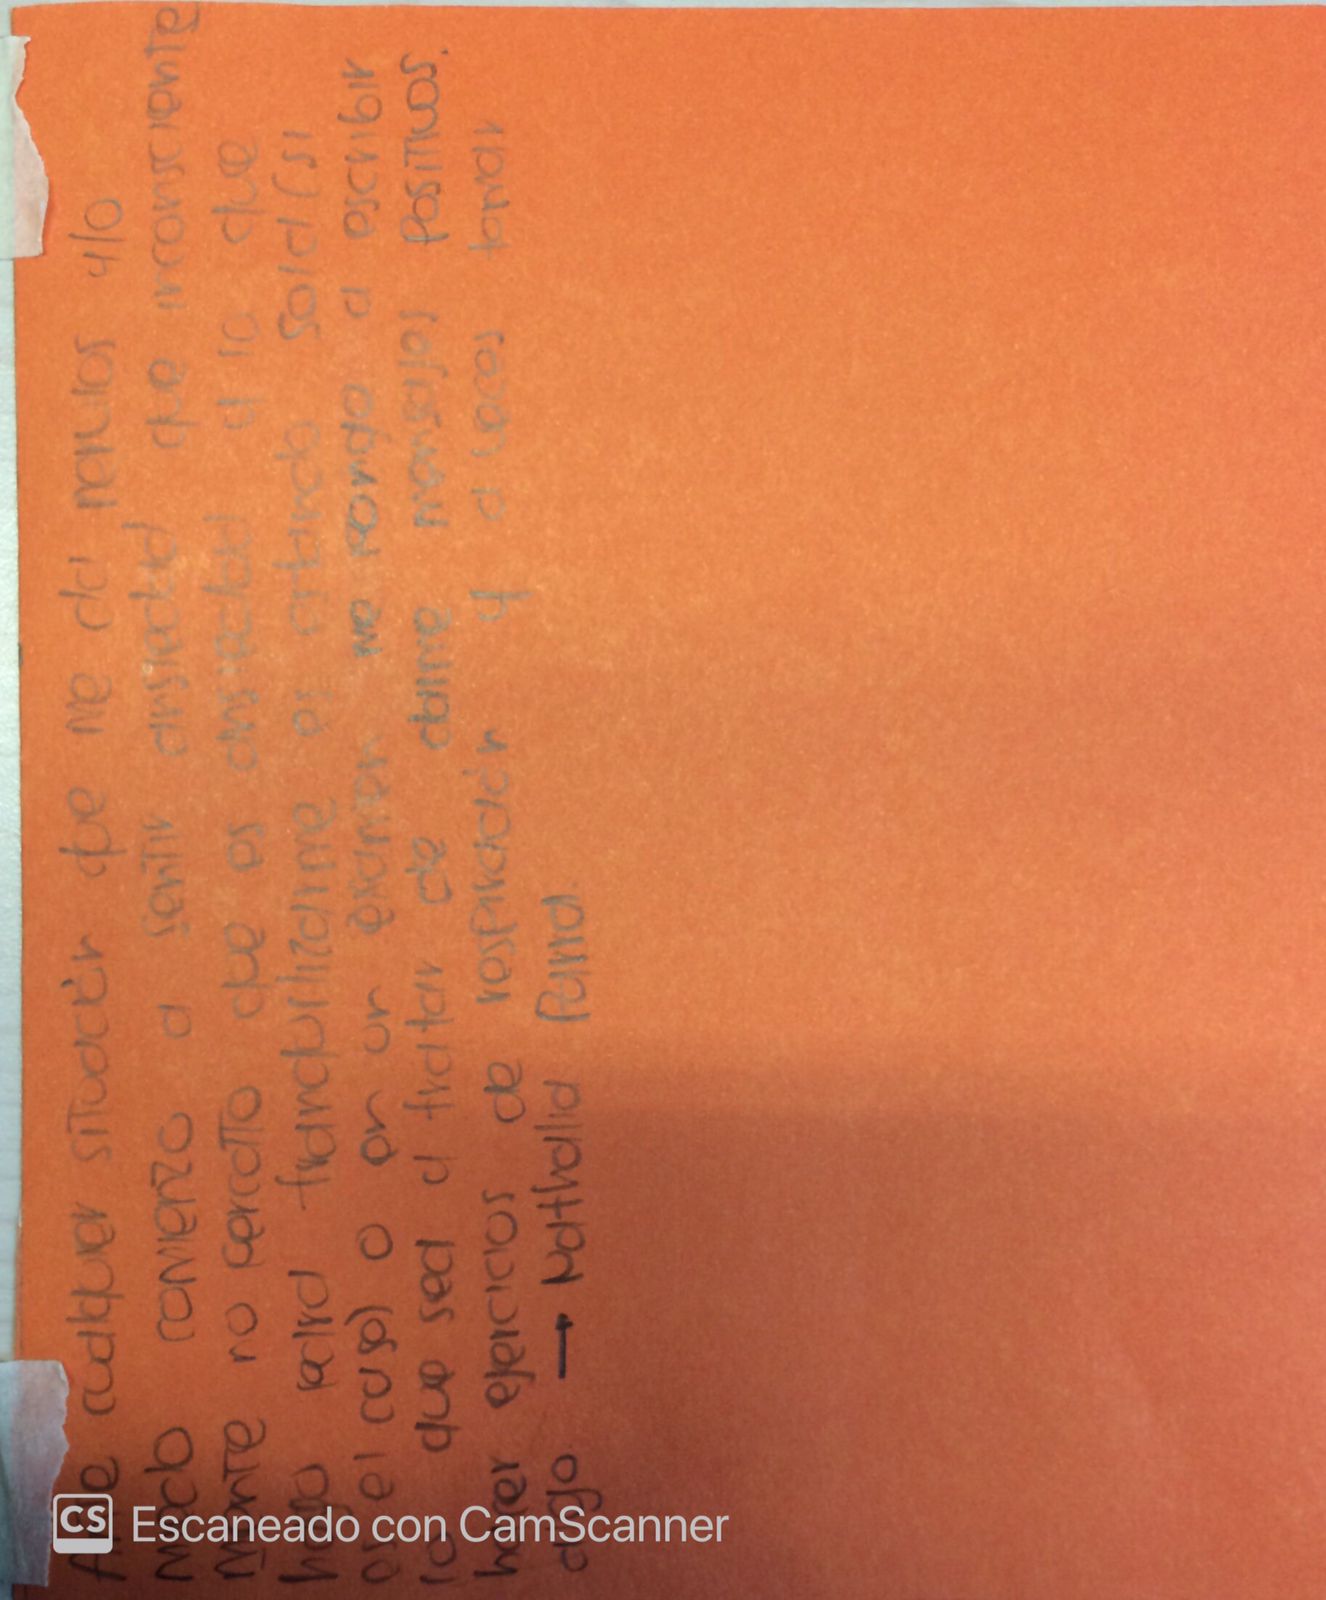 Ante cualquier situación que me da nervios y/o
miedo comienzo a sentir ansiedad que inconsciente
mente no percato que es ansiedad y lo que
hago para tranquilizarme es estando sola (si
es el caso) o en un examen me pongo a escribir
lo que sea y tratar de darme mensajes positivos,
hacer ejercicios de respiración y a veces tomar
algo → Nathalia Parra.
CS Escaneado con CamScanner